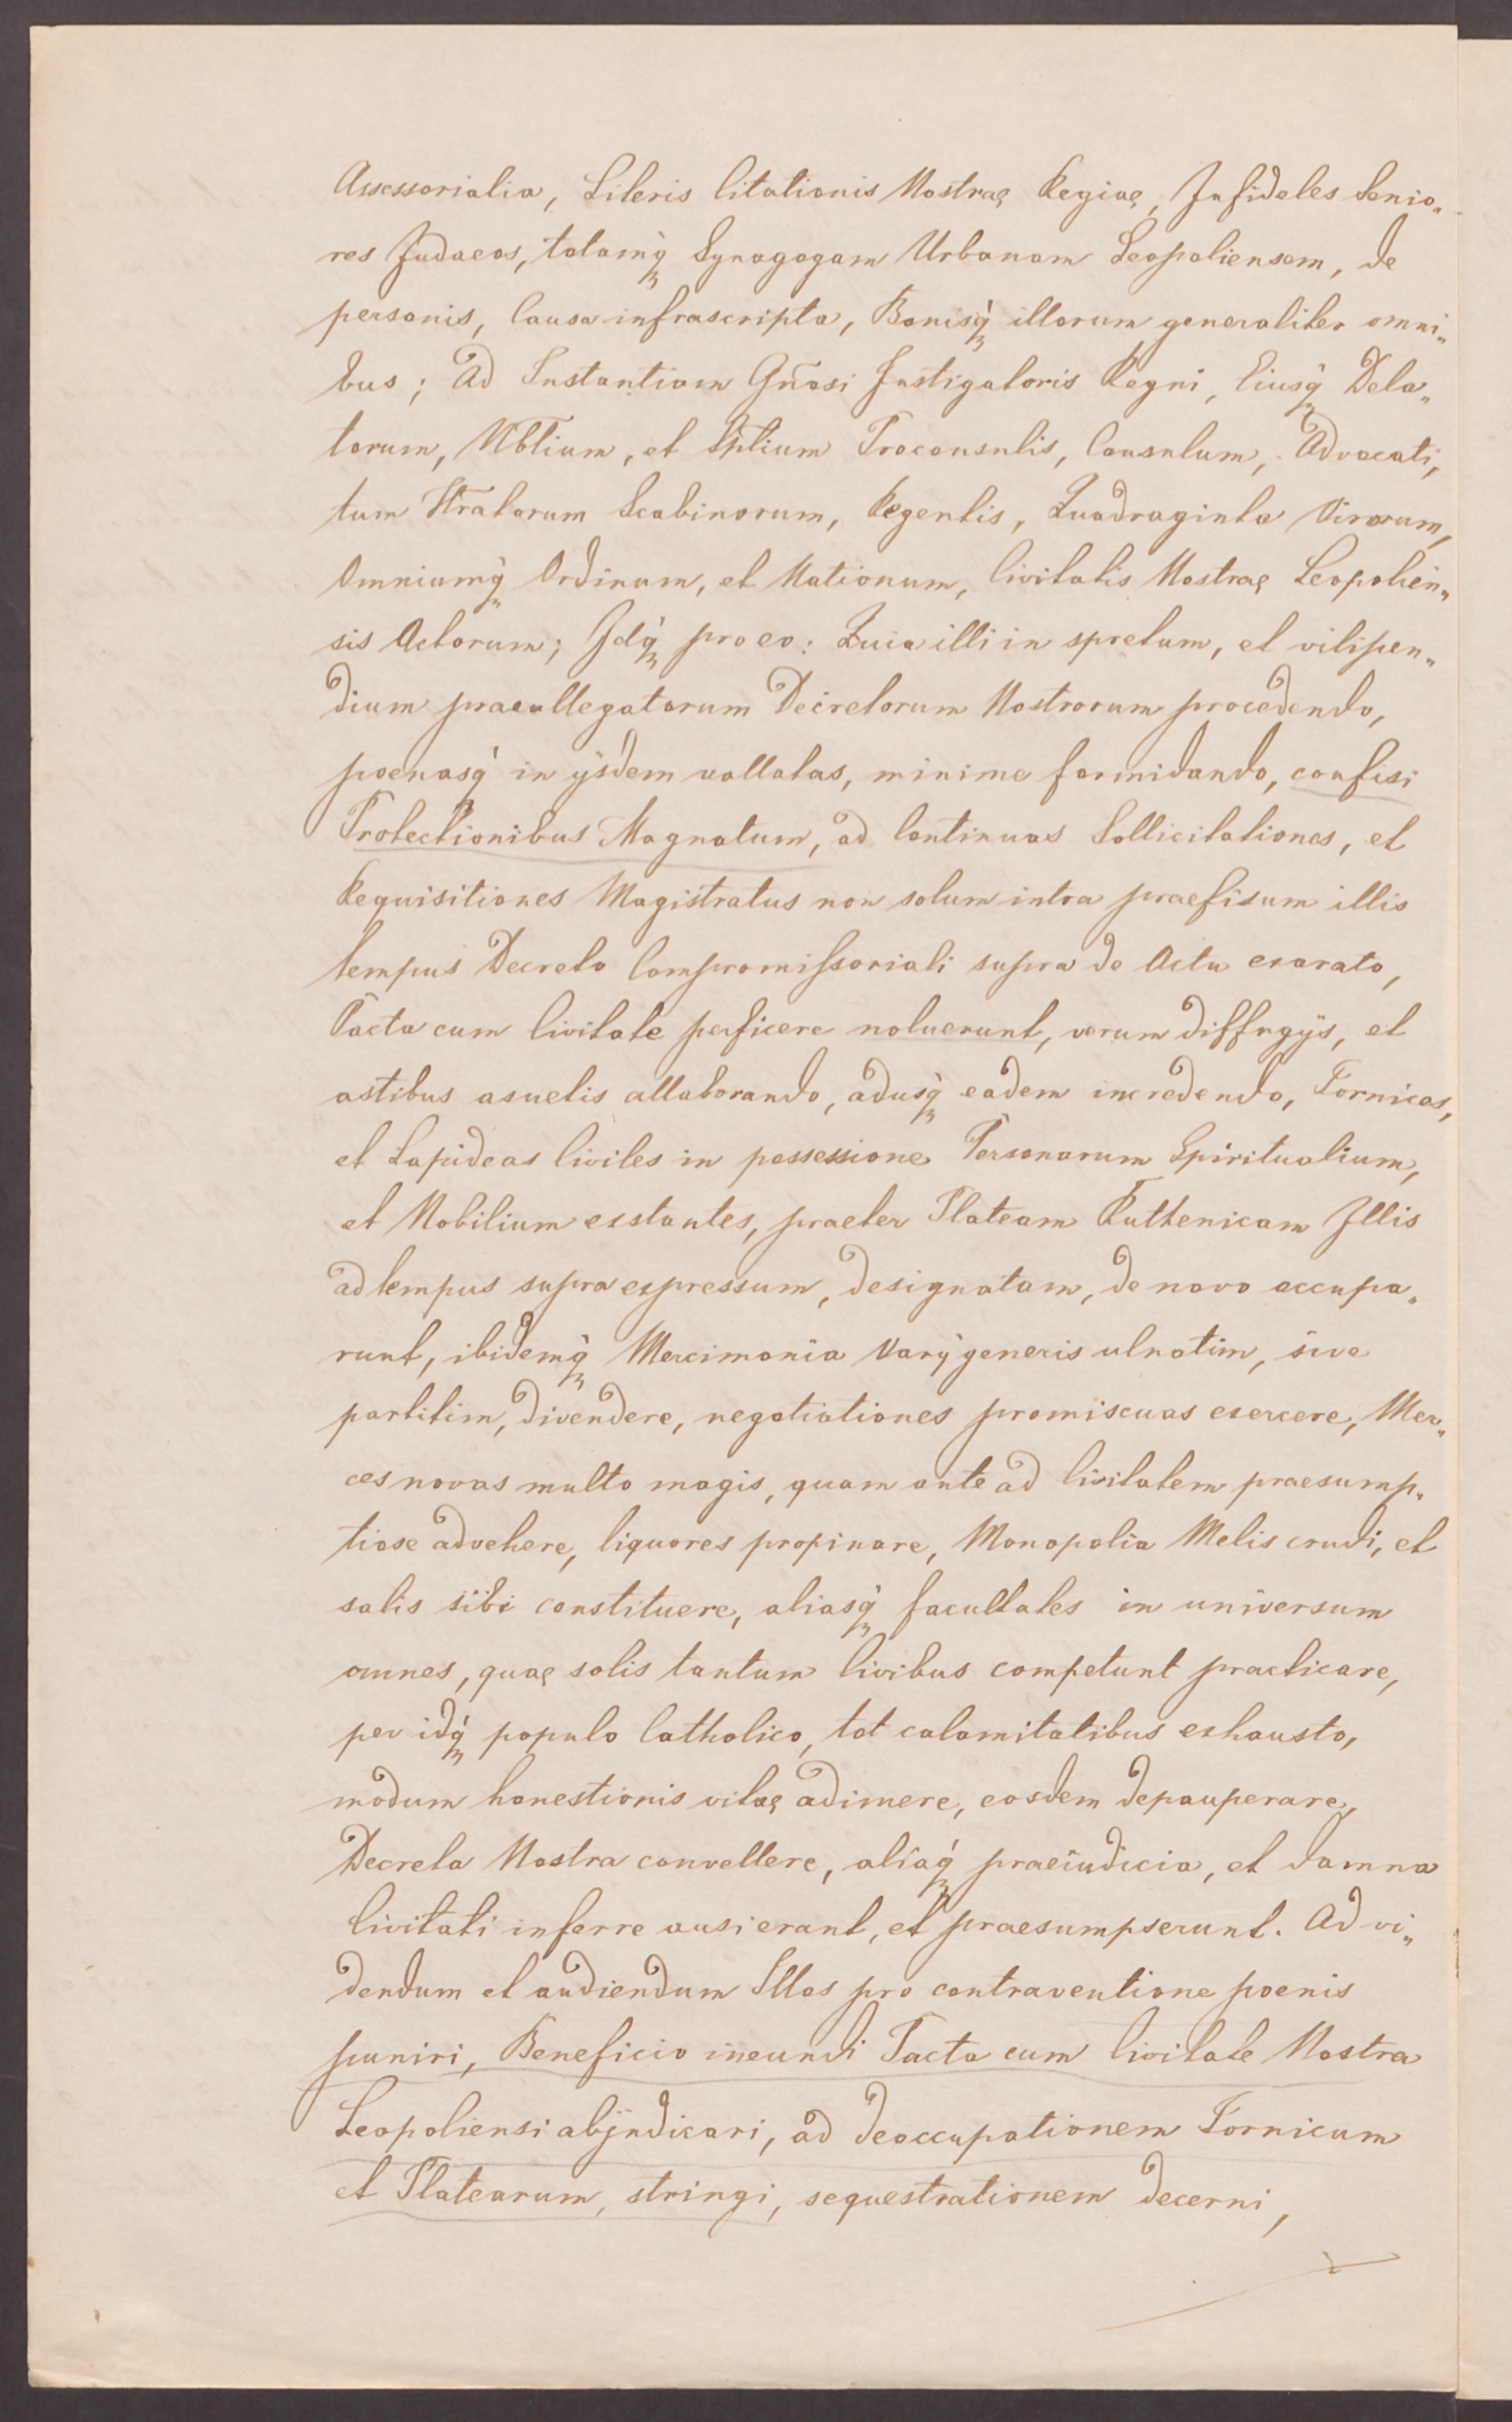 Assessorialia, Literis Citationis Nostrae Regiae, Infideles Senio„
res Judaeos, totamq̀ Synagogam Urbanam Leopoliensem, de
personis, Causa infrascripta, Bonisq̀ illorum generaliter omni„
bus; Ad Instantiam Gñosi Instigatoris Regni, Eiusq̀ Dela„
torum, Nbtium, et Sptium Proconsulis, Consulum, Advocati,
tum Htratorum Scabinorum, Regentis, Quadraginta Virorum,
Omniumq̀ Ordinum, et Nationum, Civitatis Nostrae Leopolien„
sis Actorum; Idq̀ pro eo: Quia illi in spretum, et vilipen„
dium praeallegatorum Decretorum Nostrorum procedendo,
poenasq̀ in ijsdem vallatas, minime formidando, confisi
Protectionibus Magnatum, ad Continuas Sollicitationes, et
Requisitiones Magistratus non solum intra praefixum illis
tempus Decreto Compromissoriali supra de Actu exarato,
Pacta cum Civitate perficere noluerunt, verum diffugijs, et
astibus asuetis allaborando, adusq̀ eadem incredendo, Fornices,
et Lapideas Civiles in possessione Personarum Spiritualium,
et Nobilium exstantes, praeter Plateam Ruthenicam Illis
ad tempus supra expressum, designatam, de novo occupa„
runt, ibidemq̀ Mercimonia Varij generis ulnatim, sive
partitim, divendere, negotiationes promiscuas exercere, Mer„
ces novas multo magis, quam ante ad Civitatem praesump„
tiose advehere, liquores propinare, Monopolia Melis crudi, et
salis sibi constituere, aliasq̀ facultates in universum
omnes, quae solis tantum Civibus competunt practicare,
per idq̀ populo Catholico, tot calamitatibus exhausto,
modum honestionis vitae adimere, eosdem depauperare,
Decreta Nostra convellere, aliaq̀ praeiudicia, et damna
Civitati inferre ausi erant, et praesumpserunt. Ad vi„
dendum et audiendum Illos pro contraventione poenis
puniri, Beneficio ineundi Pacta cum Civitate Nostra
Leopoliensi abjudicari, ad deoccupationem Fornicum
et Platearum, stringi, sequestrationem decerni,